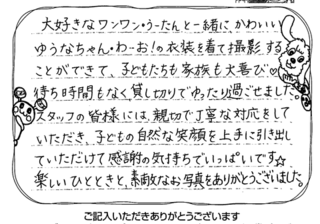 大好きなワンワン・うーたんと一緒に、かわいい
ゆうなちゃん・わーお!の衣装を着て撮影する
ことができて、子どもたちも家族も大喜び♡
待ち時間もなく貸し切りでゆったり過ごせました
スタッフの皆様には、親切で丁寧な対応をして
いただき、子どもの自然な笑顔を上手に引き出し
ていただけて感謝の気持ちでいっぱいです☆
楽しいひとときと、素敵なお写真をありがとうございました。
ご記入いただきありがとうございます